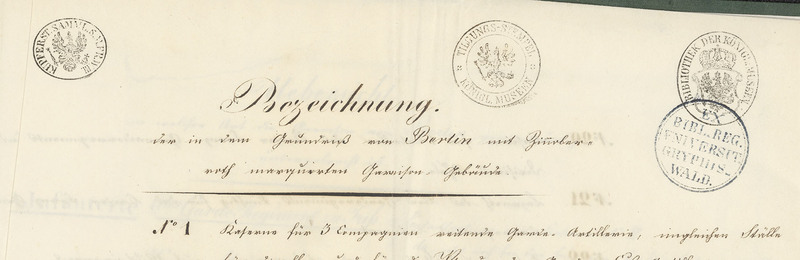 KUPFERST. SAMML. S. K. PR. M.
TILGUNGS-STEMPEL
KÖNIGL. MUSEEN
BIBLIOTHEK DER KÖNIGL. MUSEEN
EX
BIBL. REG.
UNIVERSIT.
GRYPHIS-
WALD.
Bezeichnung.
der in dem Grundriß von Berlin mit Zinnober-
roth marquirten Garnison-Gebäude
No 1 Kaserne für 3 Compagnien reitende Garde-Artillerie, ingleichen Ställe